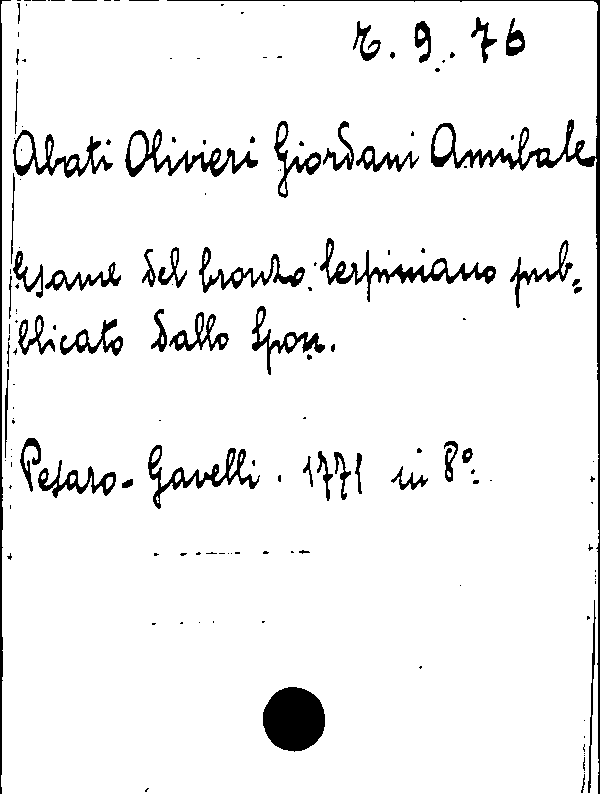 9. 76
Abati Olivieri Giordani Annibale
Esame del bronzo lerpiniano pub=
blicato dallo Spon.
Pesaro - Gavelli. 1771 in 8º